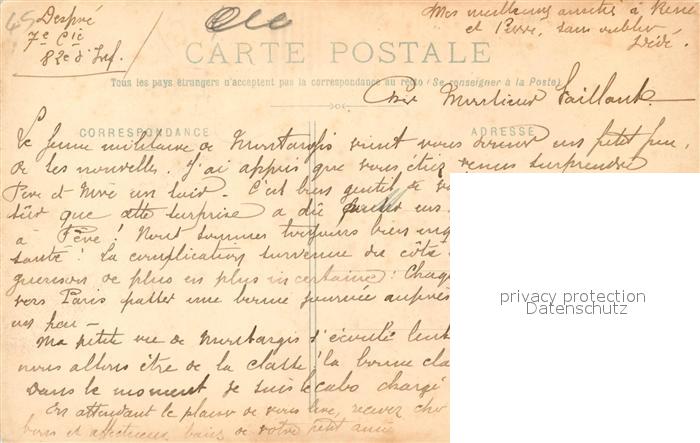 Despré
7e Cie
82e d'Inf.
45
Mes meilleures amitiés à René
et Pierre, sans oublier
Dédé.
CARTE POSTALE
Tous les pays étrangers n'acceptent pas la correspondance au recto (Se renseigner à la Poste)
Cher Monsieur Vaillant.
CORRESPONDANCE
ADRESSE
Le jeune militaire de Montargis vient vous donner un petit peu
de les nouvelles. J'ai appris que vous étiez venus surprendre
Père et Mère un soir. C'est bien gentil de
sûr que cette surprise a dû
à Pévé! Nous sommes toujours bien
santé! La complication survenue du côté
guérison de plus en plus incertaine! Chaq
vers Paris passer une bonne journée auprès
un peu —
Ma petite vie de Montargis s'écoule lent
nous allons être de la classe, la bonne cla
Dans le moment je suis le cabo chargé
En attendant le plaisir de vous lire, recevez che
bons et affectueux baisers de votre petit ami
privacy protection
Datenschutz